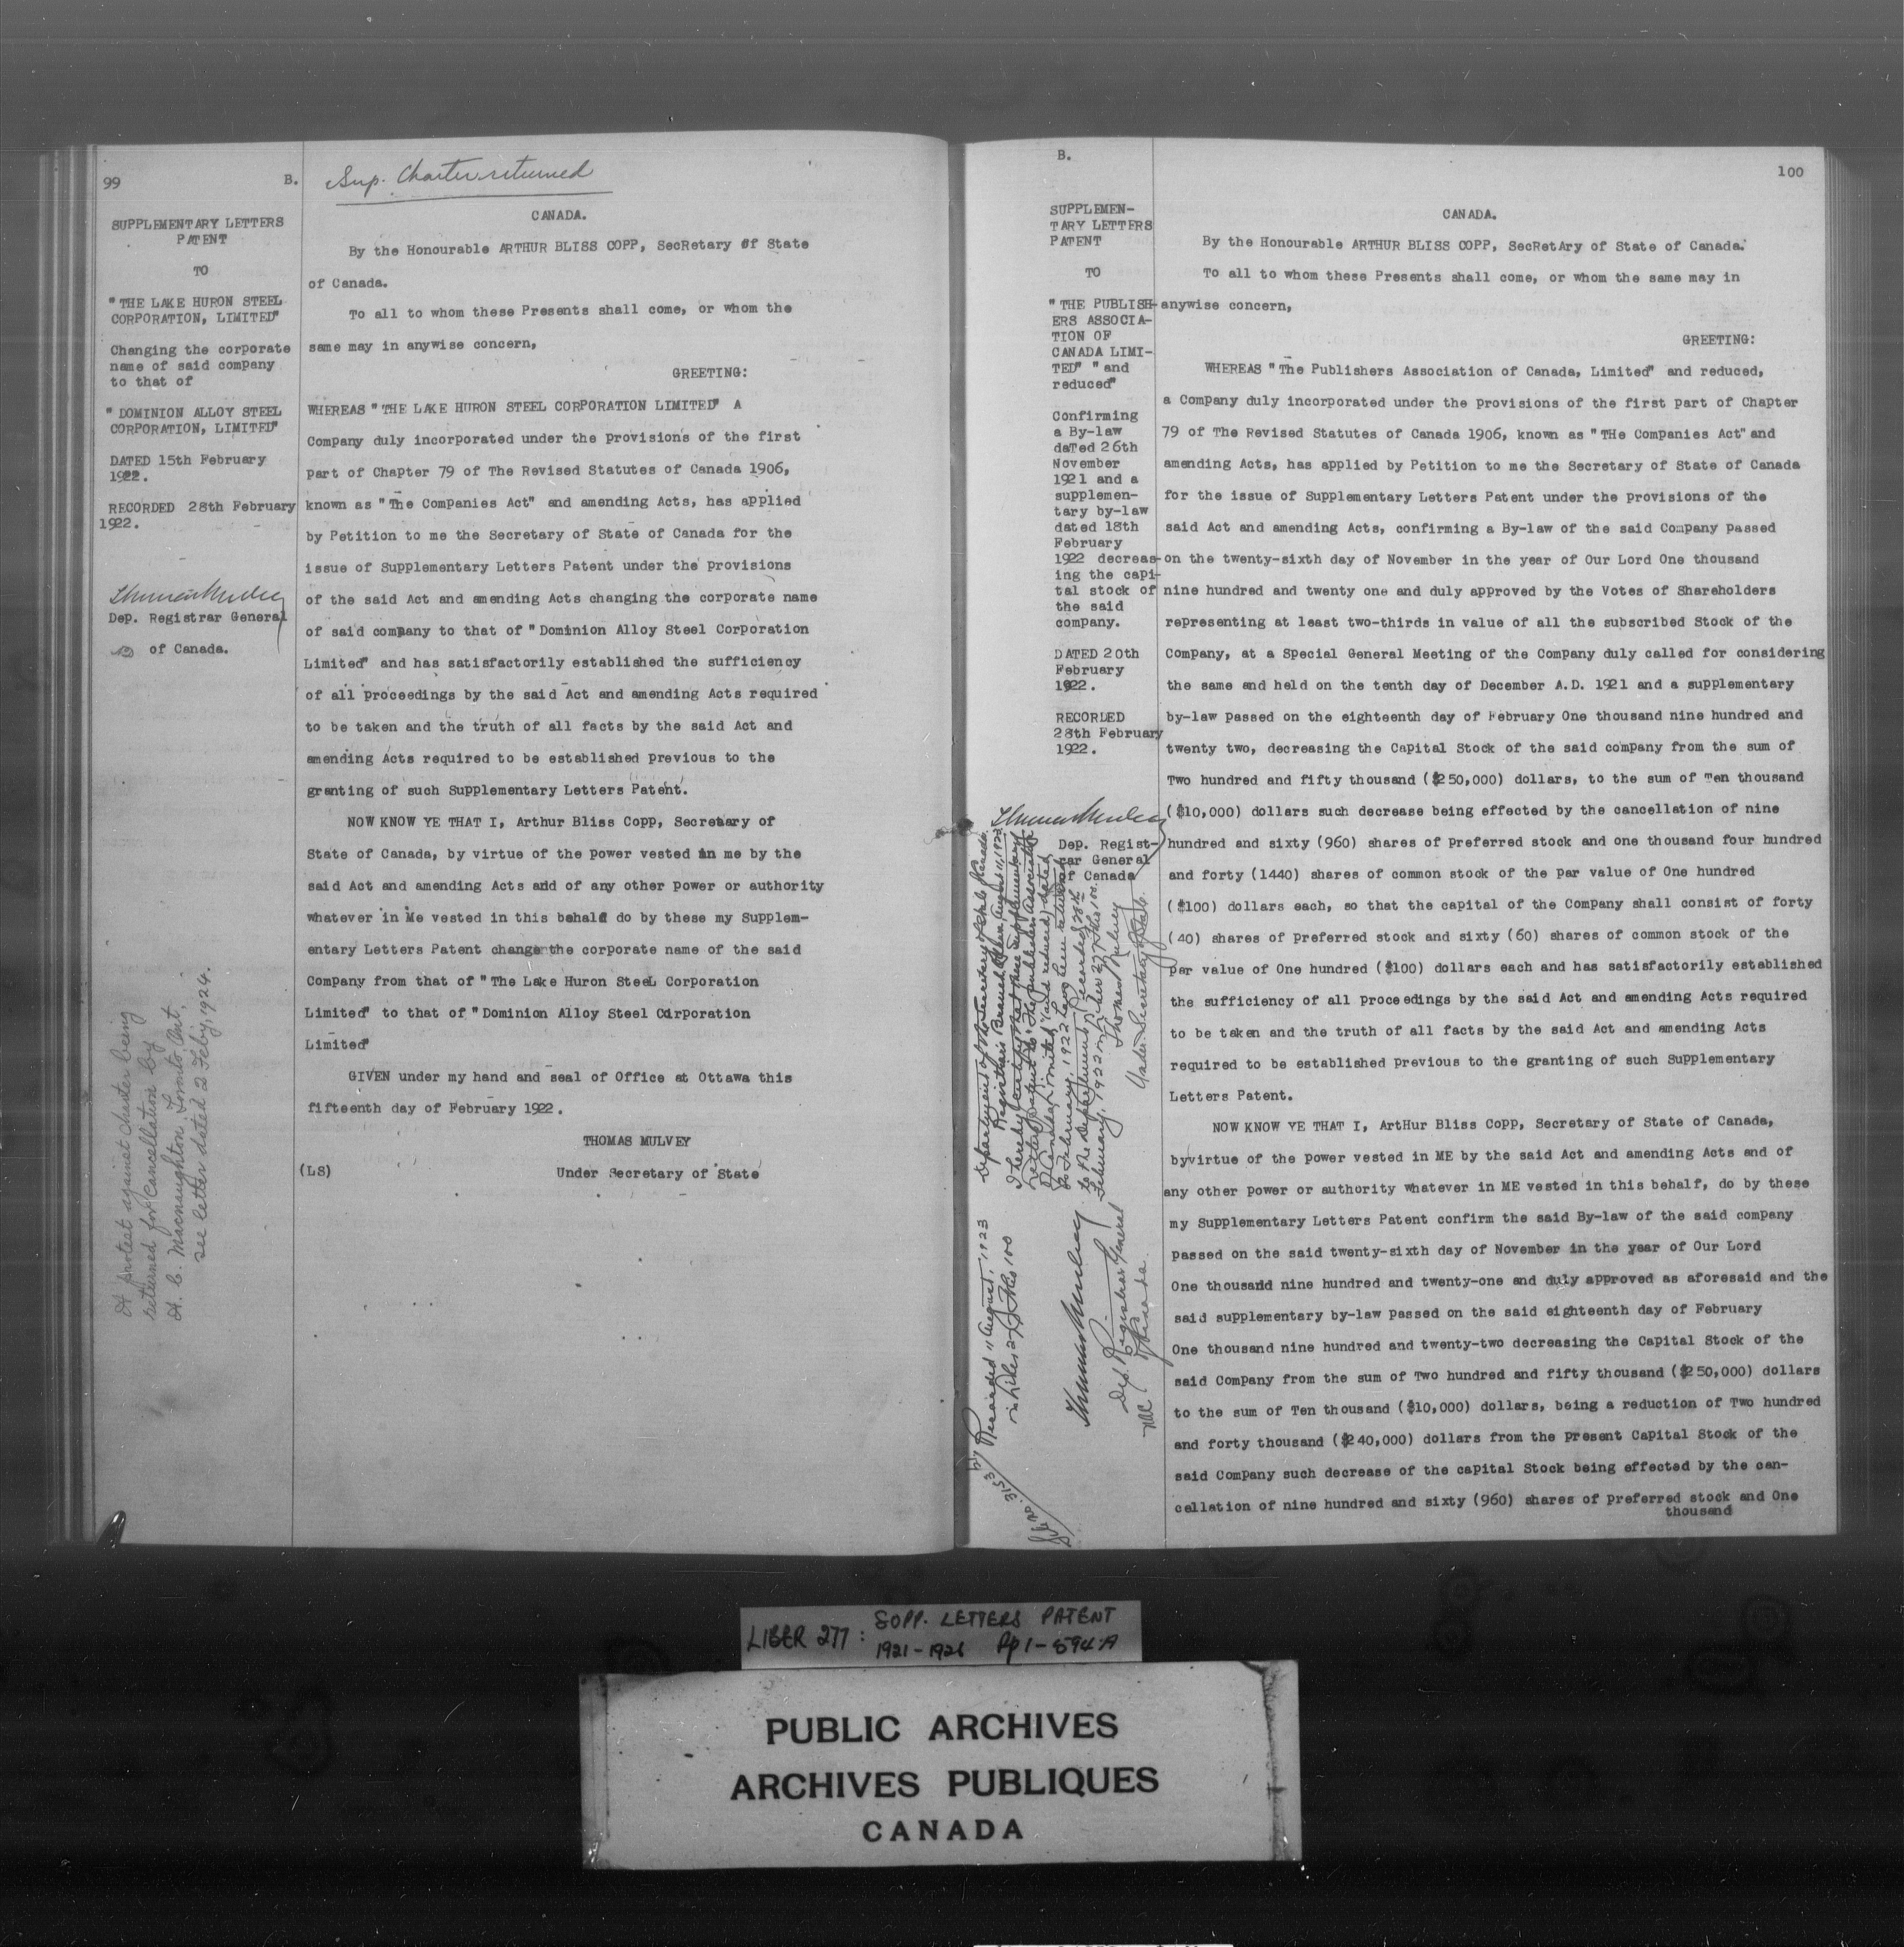 99
B.
Sup. Charter returned
SUPPLEMENTARY LETTERS
PATENT
TO
"THE LAKE HURON STEEL
CORPORATION, LIMITED"
Changing the corporate
name of said company
to that of
"DOMINION ALLOY STEEL
CORPORATION, LIMITED"
DATED 15th February
1922.
RECORDED 28th February
1922.
Thomas Mulvey
Dep. Registrar General
of Canada.
A protest against Charter being
returned for cancellation by
H. C. Macnaughton, Toronto, Ont,
see letter dated 2 Feby, 1924.
CANADA.
By the Honourable ARTHUR BLISS COPP, SecRetary of State
of Canada.
To all to whom these Presents shall come, or whom the
same may in anywise concern,
GREETING:
WHEREAS "THE LAKE HURON STEEL CORPORATION LIMITED" A
Company duly incorporated under the provisions of the first
part of Chapter 79 of The Revised Statutes of Canada 1906,
known as "The Companies Act" and amending Acts, has applied
by Petition to me the Secretary of State of Canada for the
issue of Supplementary Letters Patent under the provisions
of the said Act and amending Acts changing the corporate name
of said company to that of "Dominion Alloy Steel Corporation
Limited" and has satisfactorily established the sufficiency
of all proceedings by the said Act and amending Acts required
to be taken and the truth of all facts by the said Act and
amending Acts required to be established previous to the
granting of such Supplementary Letters Patent.
NOW KNOW YE THAT I, Arthur Bliss Copp, Secretary of
State of Canada, by virtue of the power vested in me by the
said Act and amending Acts and of any other power or authority
whatever in Me vested in this behalf do by these my Supplem-
entary Letters Patent change the corporate name of the said
Company from that of "The Lake Huron Steel Corporation
Limited" to that of "Dominion Alloy Steel Corporation
Limited"
GIVEN under my hand and seal of Office at Ottawa this
fifteenth day of February 1922.
THOMAS MULVEY
(LS) Under Secretary of State
B.
100
SUPPLEMEN-
TARY LETTERS
PATENT
TO
"THE PUBLISH-
ERS ASSOCIA-
TION OF
CANADA LIMI-
TED" "and
reduced"
Confirming
a By-law
daTed 26th
November
1921 and a
supplemen-
tary by-law
dated 18th
February
1922 decreas-
ing the capi-
tal stock of
the said
company.
DATED 20th
February
1922.
RECORDED
28th February
1922.
Thomas Mulvey
Dep. Regist-
rar General
of Canada
Department of the Secretary of State Canada.
Registrar's Branch, Ottawa, August 11, 1923
I hereby certify that these Supplementary
Letters Patent to "The Publishers Association
of Canada, Limited" (and reduced) dated
20 February, 1922 have been returned
to the Department, recorded 28th
February, 1922 in Liber 277 folio 100.
Thomas Mulvey
Under-Secretary of State.
Recorded 11 August, 1923
in Liber 277 folio 100
Thomas Mulvey
Dep. Registrar General
of Canada.
CANADA.
By the Honourable ARTHUR BLISS COPP, SecRetAry of State of Canada.
To all to whom these Presents shall come, or whom the same may in
anywise concern,
GREETING:
WHEREAS "The Publishers Association of Canada, Limited" and reduced,
a Company duly incorporated under the provisions of the first part of Chapter
79 of The Revised Statutes of Canada 1906, known as "THe Companies Act" and
amending Acts, has applied by Petition to me the Secretary of State of Canada
for the issue of Supplementary Letters Patent under the provisions of the
said Act and amending Acts, confirming a By-law of the said Company passed
on the twenty-sixth day of November in the year of Our Lord One thousand
nine hundred and twenty one and duly approved by the Votes of Shareholders
representing at least two-thirds in value of all the subscribed Stock of the
Company, at a Special General Meeting of the Company duly called for considering
the same and held on the tenth day of December A.D. 1921 and a supplementary
by-law passed on the eighteenth day of February One thousand nine hundred and
twenty two, decreasing the Capital Stock of the said company from the sum of
Two hundred and fifty thousand ($250,000) dollars, to the sum of Ten thousand
($10,000) dollars such decrease being effected by the cancellation of nine
hundred and sixty (960) shares of preferred stock and one thousand four hundred
and forty (1440) shares of common stock of the par value of One hundred
($100) dollars each, so that the capital of the Company shall consist of forty
(40) shares of preferred stock and sixty (60) shares of common stock of the
par value of One hundred ($100) dollars each and has satisfactorily established
the sufficiency of all proceedings by the said Act and amending Acts required
to be taken and the truth of all facts by the said Act and amending Acts
required to be established previous to the granting of such Supplementary
Letters Patent.
NOW KNOW YE THAT I, ArtHur Bliss Copp, Secretary of State of Canada,
byvirtue of the power vested in ME by the said Act and amending Acts and of
any other power or authority whatever in ME vested in this behalf, do by these
my Supplementary Letters Patent confirm the said By-law of the said company
passed on the said twenty-sixth day of November in the year of Our Lord
One thousand nine hundred and twenty-one and duly approved as aforesaid and the
said supplementary by-law passed on the said eighteenth day of February
One thousand nine hundred and twenty-two decreasing the Capital Stock of the
said Company from the sum of Two hundred and fifty thousand ($250,000) dollars
to the sum of Ten thousand ($10,000) dollars, being a reduction of Two hundred
and forty thousand ($240,000) dollars from the present Capital Stock of the
said Company such decrease of the capital Stock being effected by the can-
cellation of nine hundred and sixty (960) shares of preferred stock and One
thousand
LIBER 277: SUPP. LETTERS PATENT
1921-1926 Pp 1-594A
PUBLIC ARCHIVES
ARCHIVES PUBLIQUES
CANADA